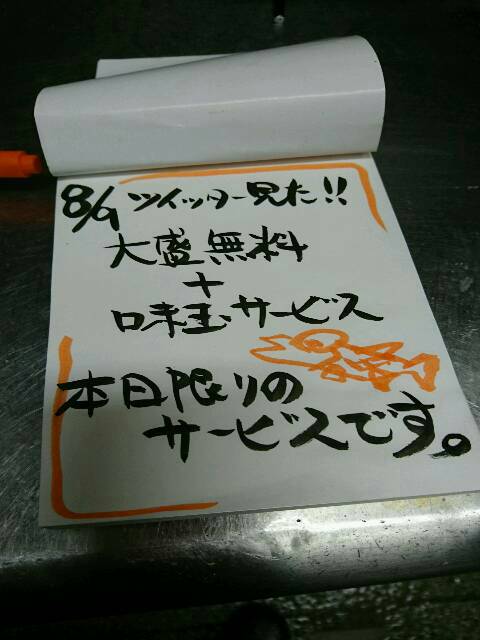 8/9 ツイッター見た!!
大盛無料
+
味玉サービス
本日限りの
サービスです。